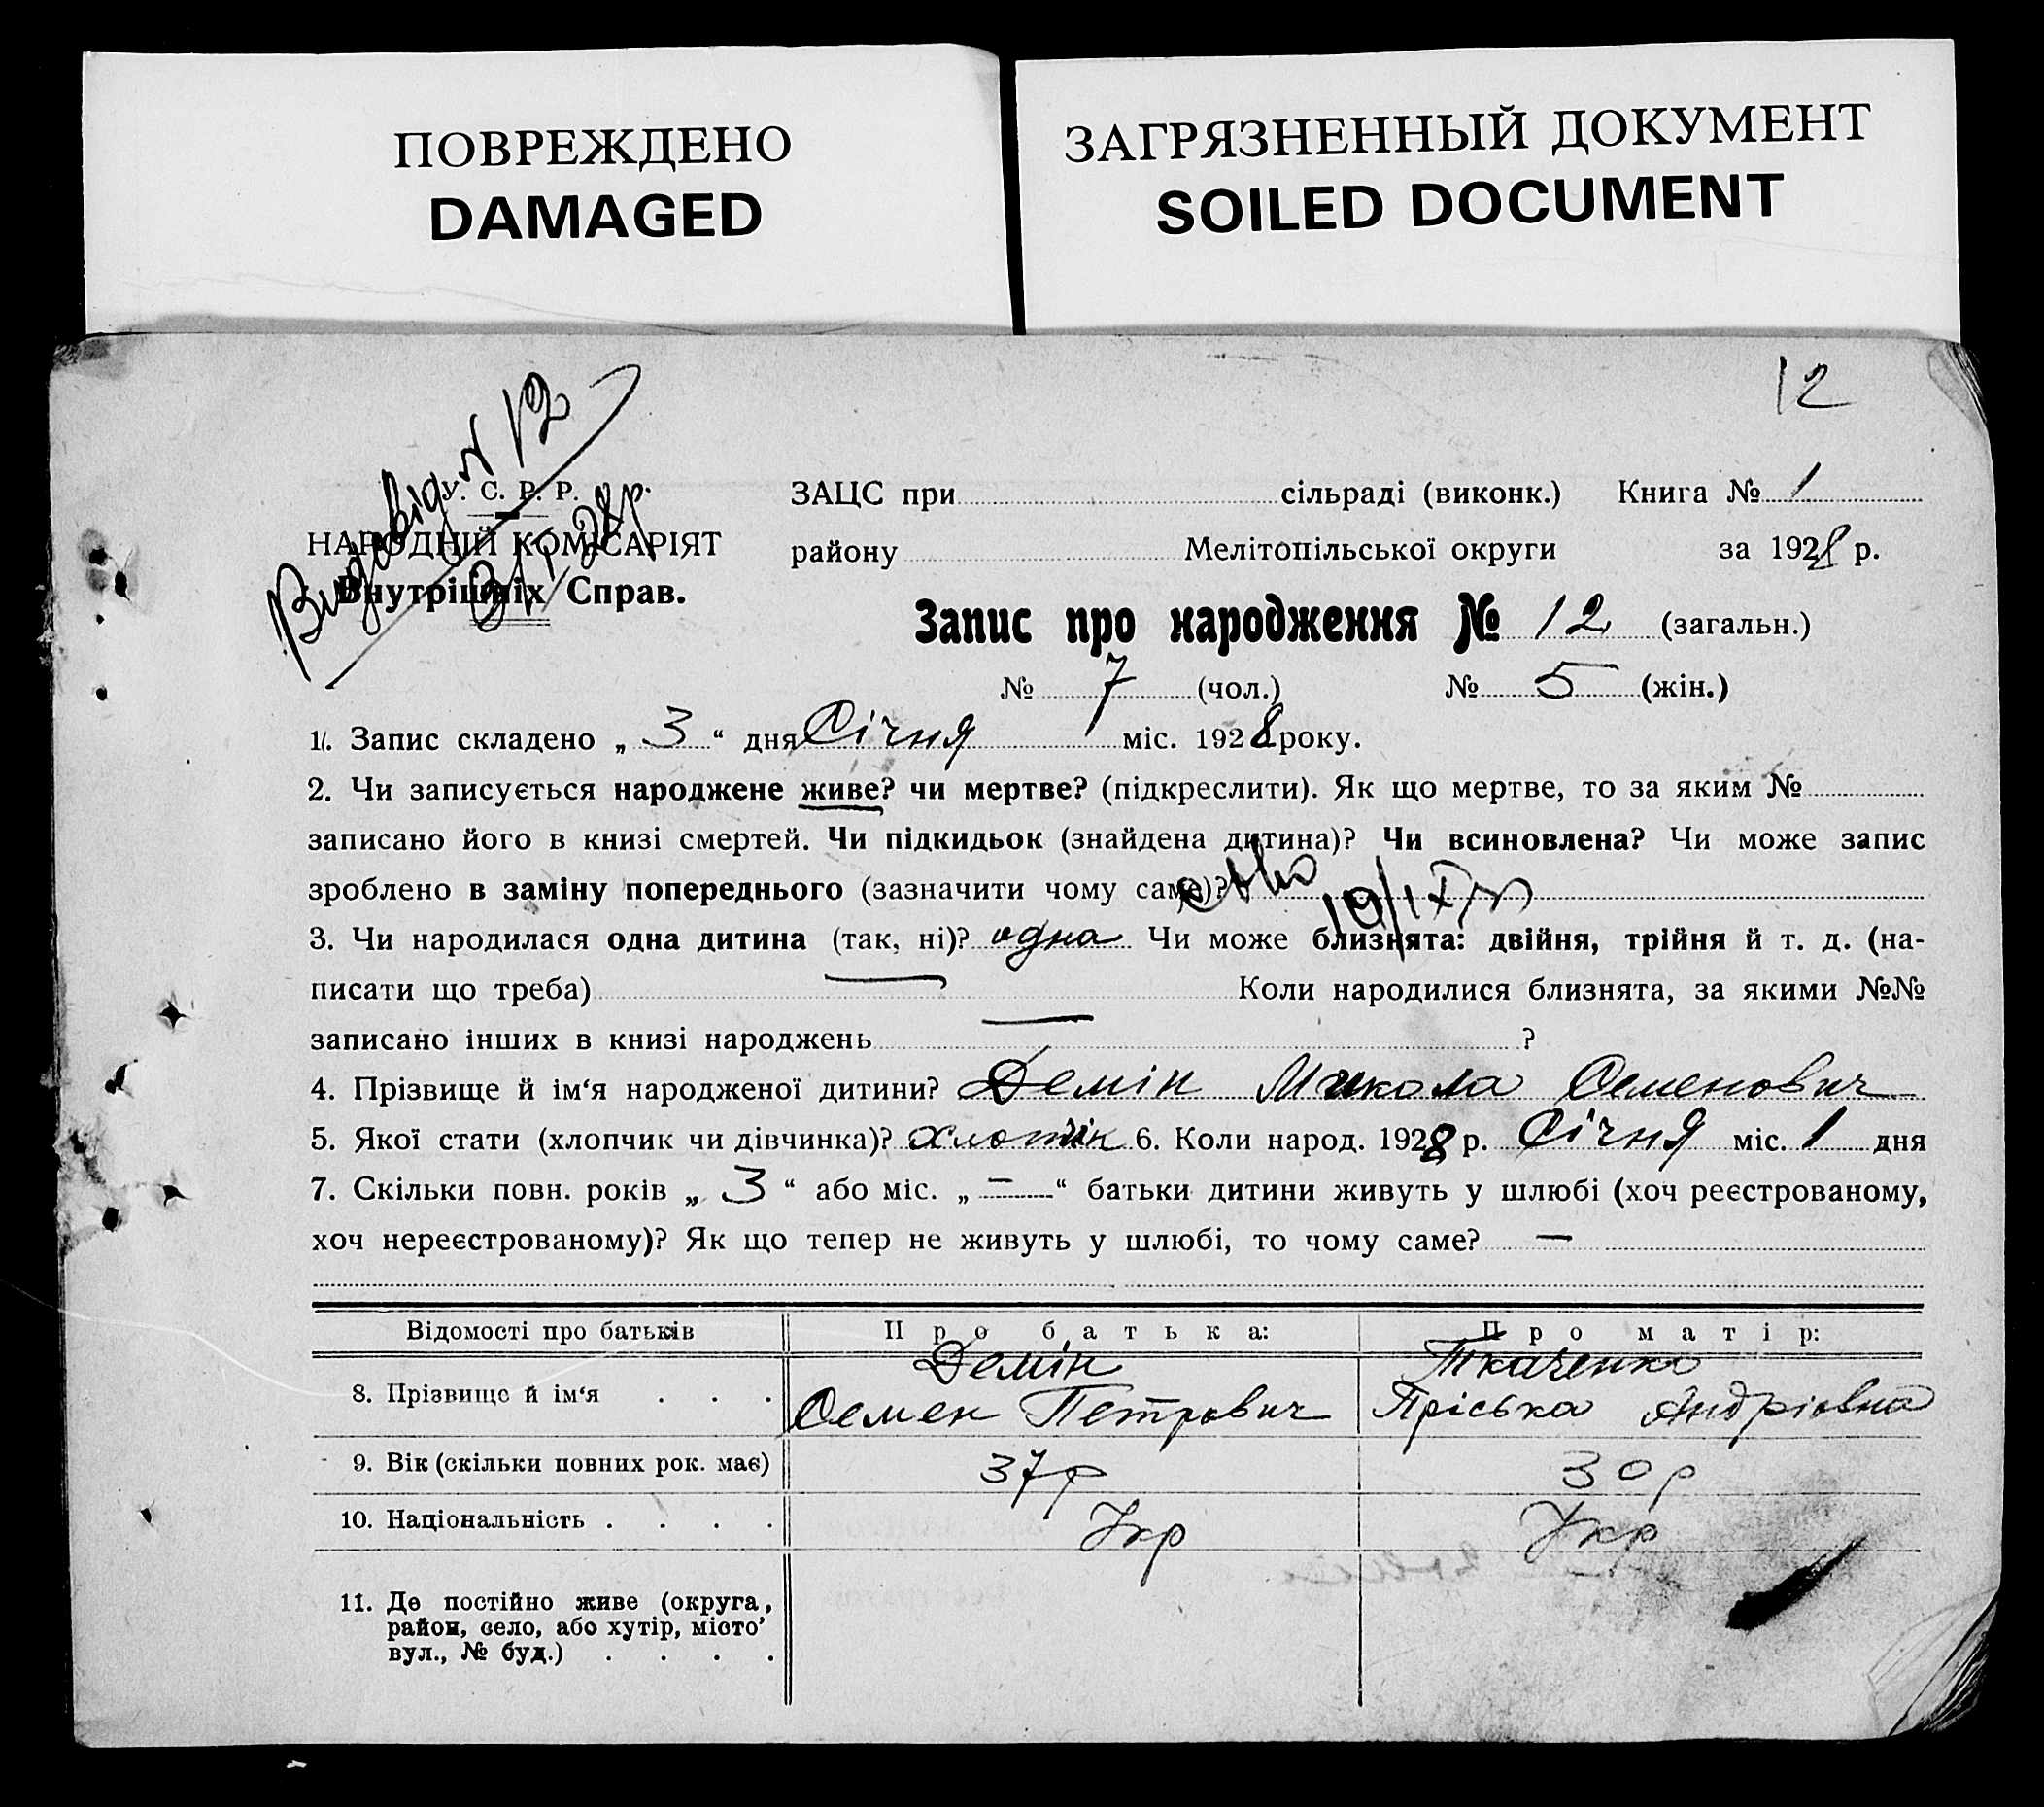 ПОВРЕЖДЕНО
DAMAGED
ЗАГРЯЗНЕННЫЙ ДОКУМЕНТ
SOILED DOCUMENT
12
У. С. Р. Р.
НАРОДНІЙ КОМІСАРІЯТ
Внутрішніх Справ.
ЗАЦС при сільраді (виконк.) Книга № 1
району Мелітопільської округи за 1928 р.
Запис про народження № 12 (загальн.)
№ 7 (чол.) № 5 (жін.)
1. Запис складено „ 3 “ дня Січня міс. 1928 року.
2. Чи записується народжене живе? чи мертве? (підкреслити). Як що мертве, то за яким №
записано його в книзі смертей. Чи підкидьок (знайдена дитина)? Чи всиновлена? Чи може запис
зроблено в заміну попереднього (зазначити чому саме)?
3. Чи народилася одна дитина (так, ні)? одна Чи може близнята: двійня, трійня й т. д. (на-
писати що треба) — Коли народилися близнята, за якими №№
записано інших в книзі народжень — ?
4. Прізвище й ім‘я народженої дитини? Демін Микола Семенович
5. Якої стати (хлопчик чи дівчинка)? 6. Коли народ. 1928 р. Січня міс. 1 дня
7. Скільки повн. років „ 3 “ або міс. „ — “ батьки дитини живуть у шлюбі (хоч реєстрованому,
хоч нереєстрованому)? Як що тепер не живуть у шлюбі, то чому саме? —
Відомості про батьків Про батька: Про матір:
Демін Ткаченко
8. Прізвище й ім‘я . . . Семен Петрович Пріська Андріовна
9. Вік (скільки повних рок. має) 37 р 30 р
10. Національність . . . . Укр Укр
11. Де постійно живе (округа,
район, село, або хутір, місто’
вул., № буд.) . . . .